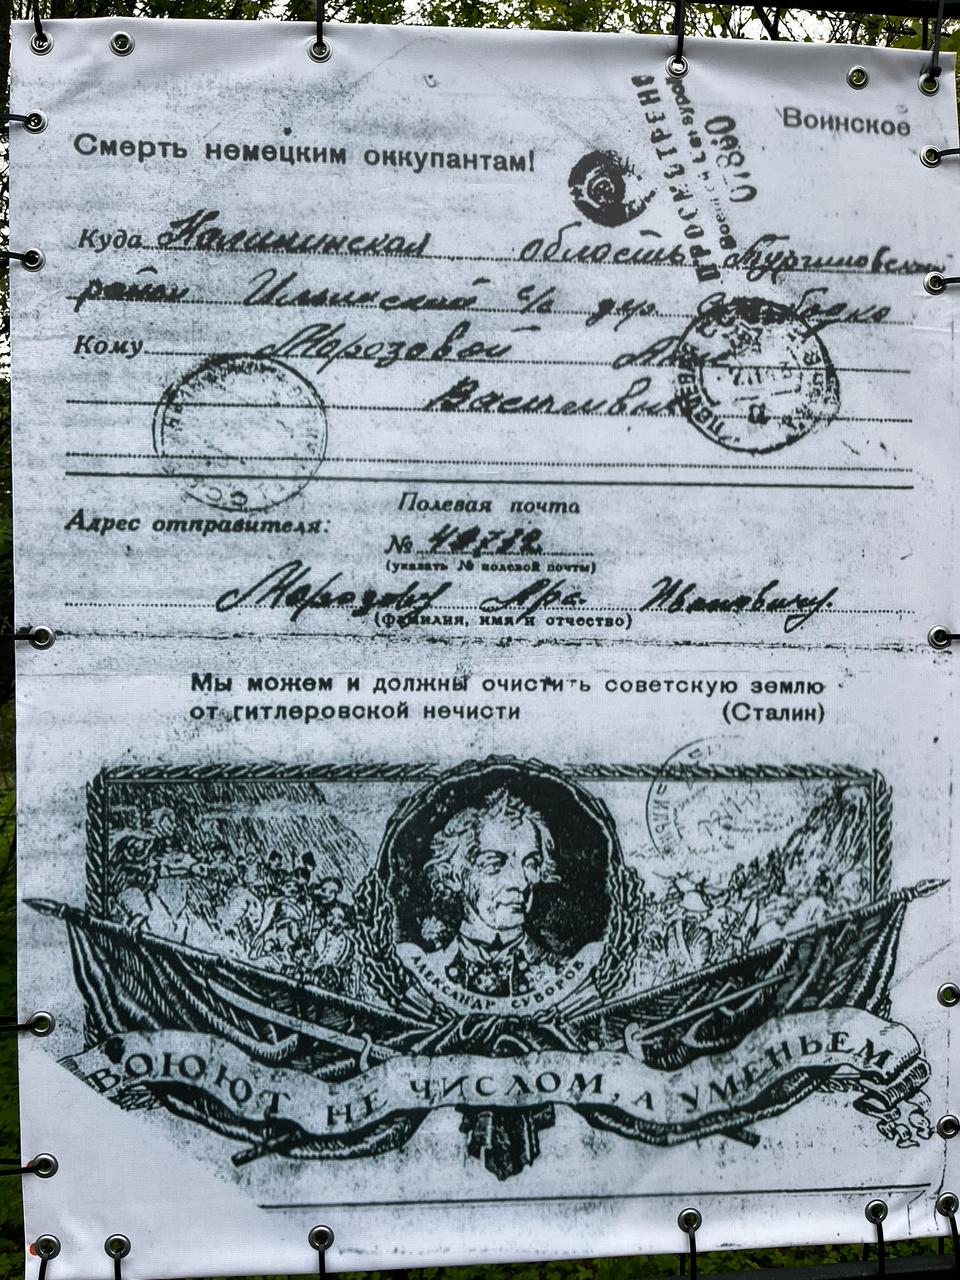 Воинское
Смерть немецким оккупантам!
ПРОСМОТРЕНО
Военной Цензурой
Куда Калининская область Тургиновский
район Ильинский с/с дер.
Кому Морозовой Анне
Васильевне
Полевая почта
Адрес отправителя:
№
(указать № полевой почты)
Морозову Ивановичу.
(фамилия, имя и отчество)
Мы можем и должны очистить советскую землю
от гитлеровской нечисти (Сталин)
АЛЕКСАНДР СУВОРОВ
ВОЮЮТ НЕ ЧИСЛОМ, А УМЕНЬЕМ